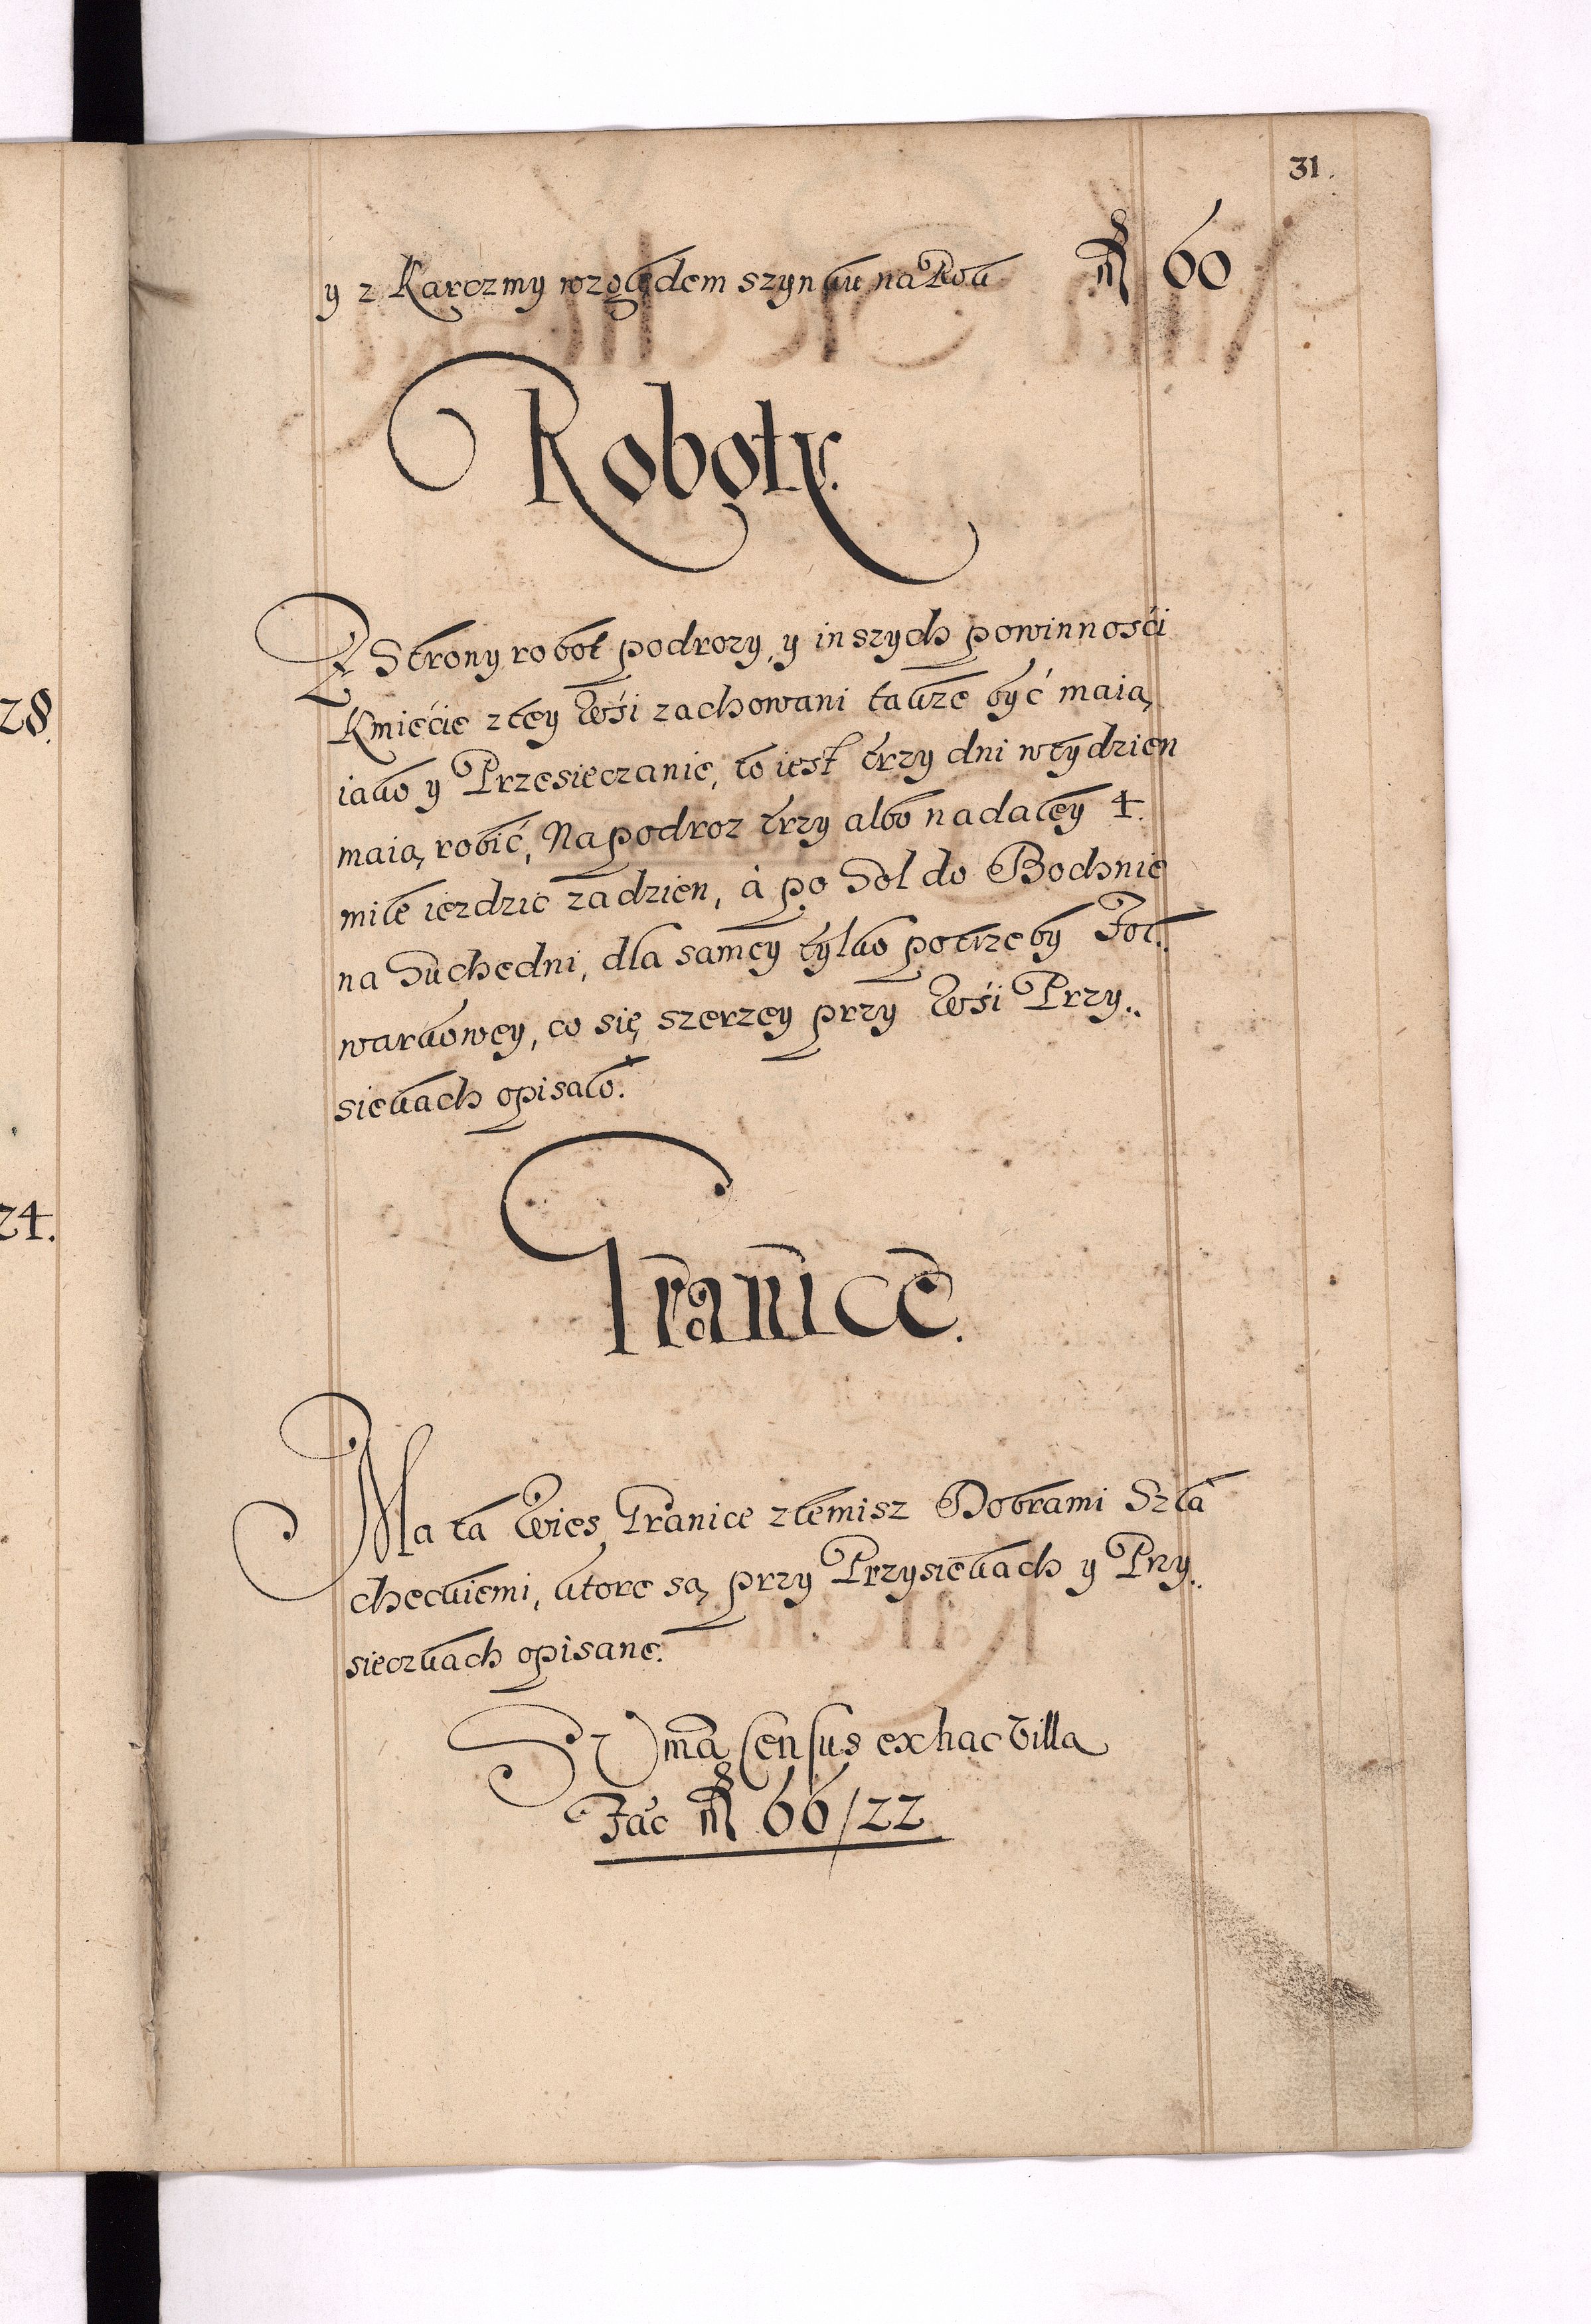 31.
y z Karczmy względem szynku na Rok fl 60
Roboty.
Z Strony robot podrozy, y inszych powinnośći
Kmiećie z tey Wśi zachowani także być maią,
iako y Przesieczanie, to iest trzy dni w tydzien
maią robić, Na podroz trzy albo nadaley 4.
mile iezdzic za dzien, á po Sol do Bochnie
na Suchedni, dla samey tylko potrzeby Fol„
warkowey, co się szerzey przy Wśi Przy„
siekach opisało.
Granice.
Ma ta Wies Granice z temisz Dobrami Szla
checkiemi, ktore są przy Przysiekach y Przy„
sieczkach opisane.
Suma Census ex hac Villa
Fac fl 66/22
28.
24.